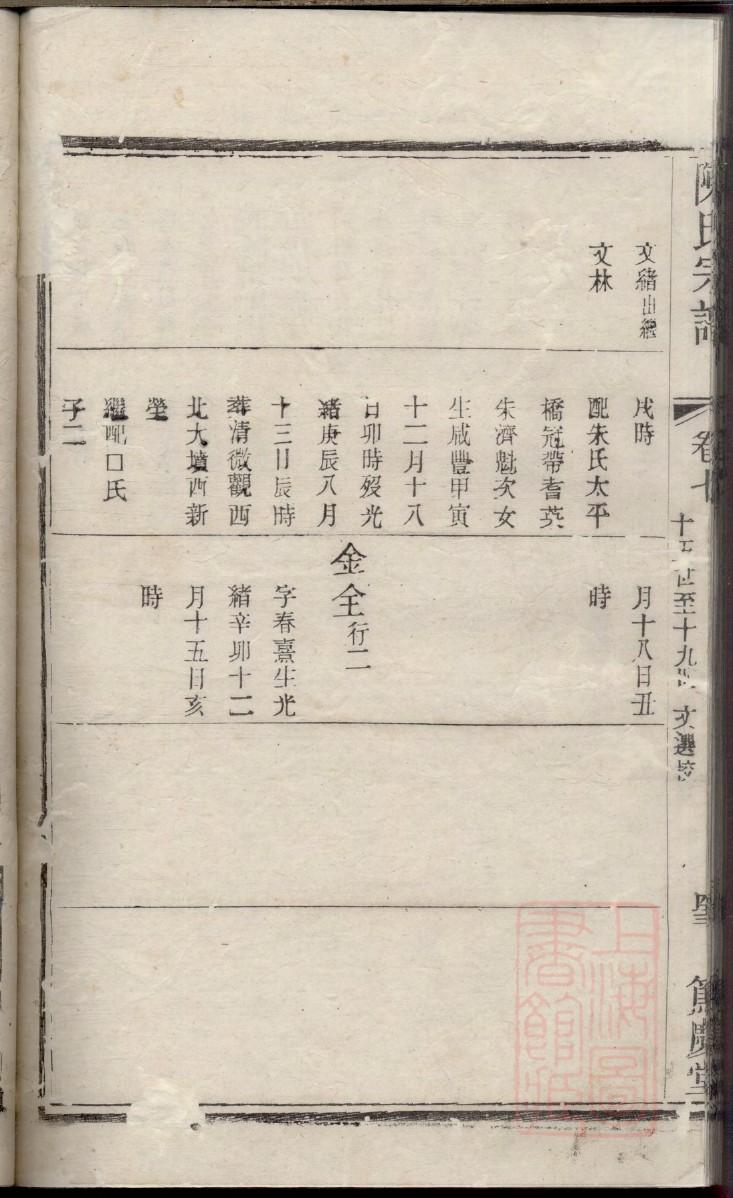 陳氏宗譜
卷七
十五世至十九世 文選校
篤慶堂
文緒出繼
文林
戌時
配朱氏太平
橋冠帶耆英
朱濟魁次女
生咸豐甲寅
十二月十八
日卯時歿光
緒庚辰八月
十三日辰時
葬清微觀西
北大墳西新
塋
繼配口氏
子二
月十八日丑
時
金全行二
字春熹生光
緒辛卯十二
月十五日亥
時
上海圖
書館藏